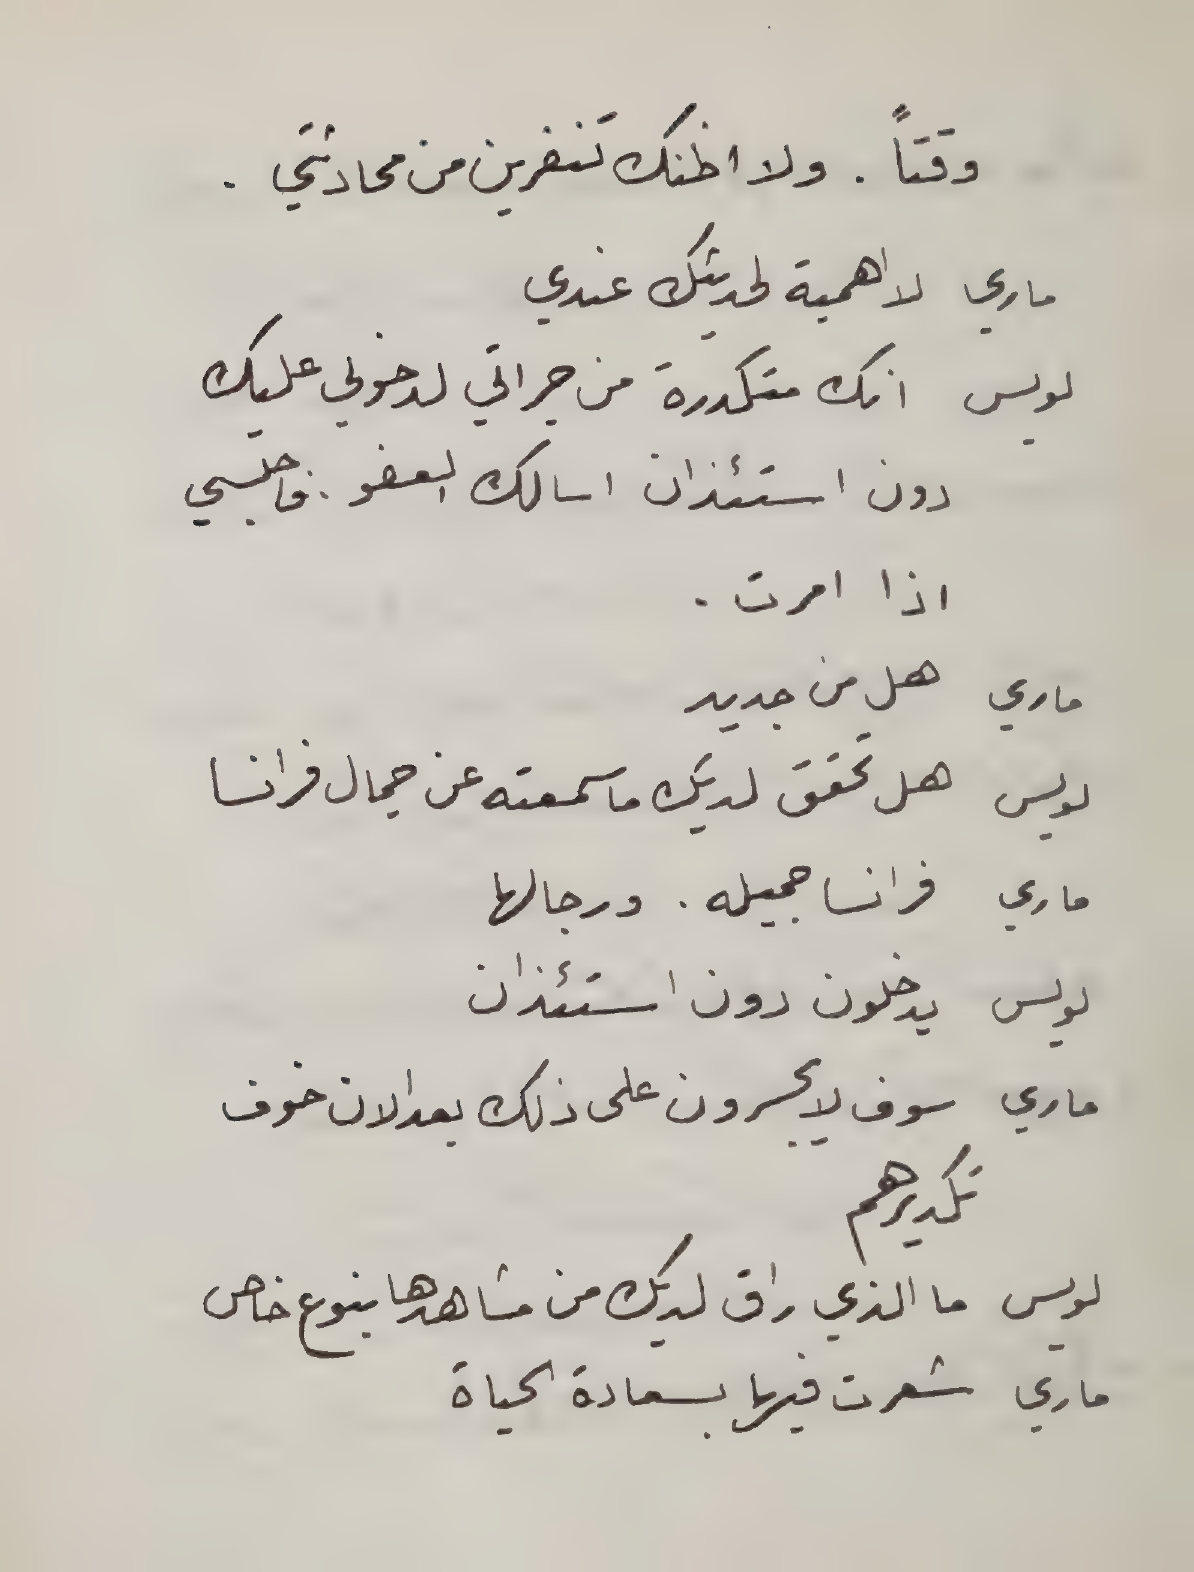 وقتاً . ولا اظنك تنفرين من محادثتي .
ماري لا اهمية لحديثك عندي
لويس انك متكدرة من جراتي لدخولي عليك
دون استئذان اسالك العفو . فاجلسي
اذا امرت .
ماري هل من جديد
لويس هل تحقق لديك ما سمعته عن جمال فرانسا
ماري فرانسا جميله . ورجالها
لويس يدخلون دون استئذان
ماري سوف لا يجسرون على ذلك بعد الان خوف
تكديرهم
لويس ما الذي راق لديك من مشاهدها بنوع خاص
ماري شعرت فيها بسعادة الحياة